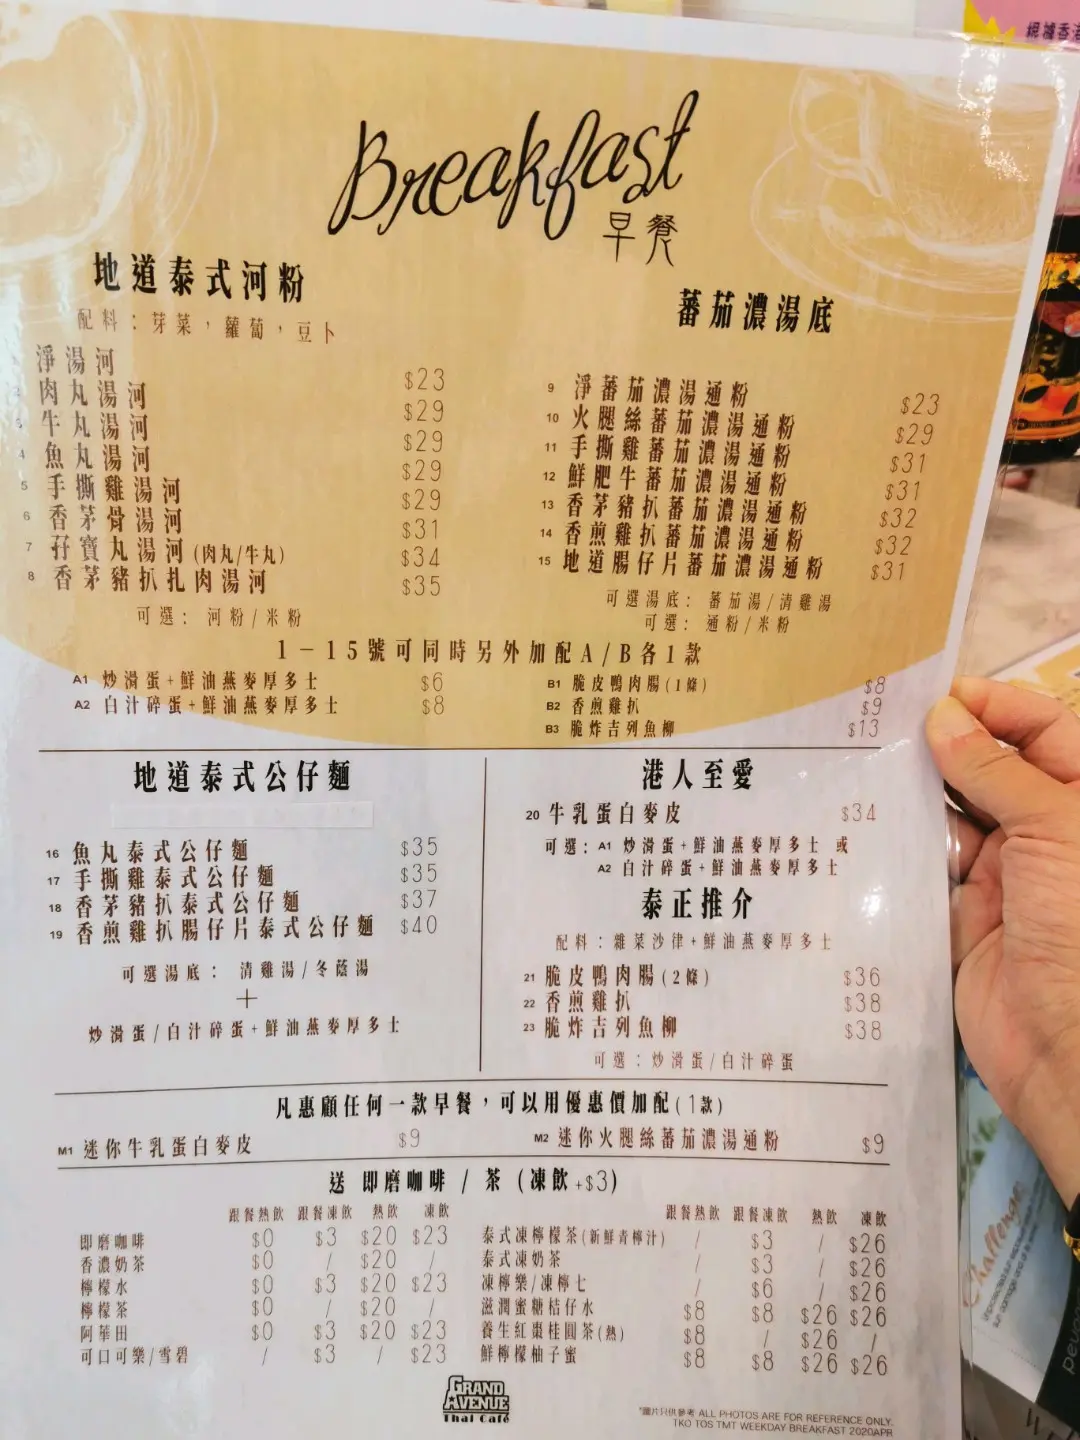 根據香港
Breakfast
早餐
地道泰式河粉
配料：芽菜，蘿蔔，豆卜
淨湯河 $23
2 肉丸湯河 $29
3 牛丸湯河 $29
4 魚丸湯河 $29
5 手撕雞湯河 $29
6 香茅骨湯河 $31
7 孖寶丸湯河(肉丸/牛丸) $34
8 香茅豬扒扎肉湯河 $35
可選：河粉/米粉
蕃茄濃湯底
9 淨蕃茄濃湯通粉 $23
10 火腿絲蕃茄濃湯通粉 $29
11 手撕雞蕃茄濃湯通粉 $31
12 鮮肥牛蕃茄濃湯通粉 $31
13 香茅豬扒蕃茄濃湯通粉 $32
14 香煎雞扒蕃茄濃湯通粉 $32
15 地道腸仔片蕃茄濃湯通粉 $31
可選湯底：蕃茄湯/清雞湯
可選：通粉/米粉
1-15號可同時另外加配A/B各1款
A1 炒滑蛋+鮮油燕麥厚多士 $6
A2 白汁碎蛋+鮮油燕麥厚多士 $8
B1 脆皮鴨肉腸(1條) $8
B2 香煎雞扒 $9
B3 脆炸吉列魚柳 $13
地道泰式公仔麵
16 魚丸泰式公仔麵 $35
17 手撕雞泰式公仔麵 $35
18 香茅豬扒泰式公仔麵 $37
19 香煎雞扒腸仔片泰式公仔麵 $40
可選湯底：清雞湯/冬蔭湯
+
炒滑蛋/白汁碎蛋+鮮油燕麥厚多士
港人至愛
20 牛乳蛋白麥皮 $34
可選：A1 炒滑蛋+鮮油燕麥厚多士 或
A2 白汁碎蛋+鮮油燕麥厚多士
泰正推介
配料：雜菜沙律+鮮油燕麥厚多士
21 脆皮鴨肉腸(2條) $36
22 香煎雞扒 $38
23 脆炸吉列魚柳 $38
可選：炒滑蛋/白汁碎蛋
凡惠顧任何一款早餐，可以用優惠價加配(1款)
M1 迷你牛乳蛋白麥皮 $9
M2 迷你火腿絲蕃茄濃湯通粉 $9
送 即磨咖啡 / 茶 (凍飲+$3)
跟餐熱飲 跟餐凍飲 熱飲 凍飲
即磨咖啡 $0 $3 $20 $23
香濃奶茶 $0 / $20 /
檸檬水 $0 $3 $20 $23
檸檬茶 $0 / $20 /
阿華田 $0 $3 $20 $23
可口可樂/雪碧 / $3 / $23
跟餐熱飲 跟餐凍飲 熱飲 凍飲
泰式凍檸檬茶(新鮮青檸汁) / $3 / $26
泰式凍奶茶 / $3 / $26
凍檸樂/凍檸七 / $6 / $26
滋潤蜜糖桔仔水 $8 $8 $26 $26
養生紅棗桂圓茶(熱) $8 / $26 /
鮮檸檬柚子蜜 $8 $8 $26 $26
GRAND
AVENUE
Thai Café
*圖片只供參考 ALL PHOTOS ARE FOR REFERENCE ONLY.
TKO TOS TMT WEEKDAY BREAKFAST 2020APR
Challenge